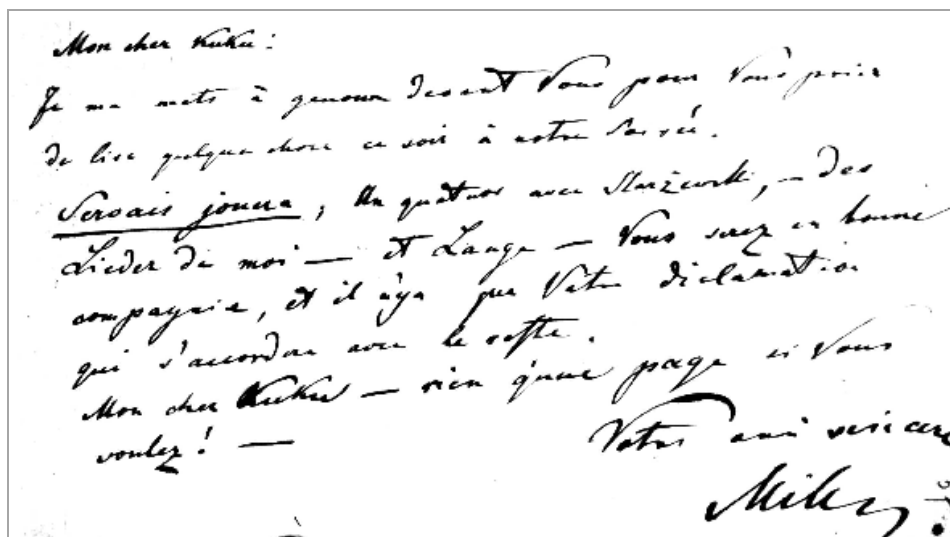 Mon cher Kuku :
Je me mets à genoux devant Vous pour Vous prier
de lire quelque chose ce soir à notre Soirée.
Servais jouera, Un quatuor avec – des
Lieder de moi — et Lange — Vous serez en bonne
compagnie, et il n'ya que Votre déclamation
qui s'accordera avec le reste.
Mon cher Kuku — rien qu'une page si Vous
voulez ! —
Votre ami sincère